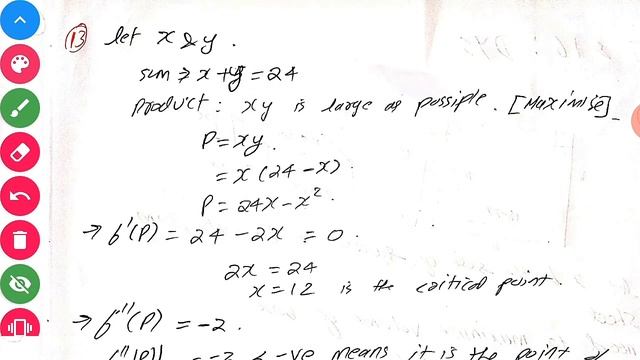 13 let x & y.
sum ⇒ x + y = 24
product: xy is large as possiple. [Maximise]
P = xy.
= x (24 - x).
P = 24x - x².
→ f'(P) = 24 - 2x = 0.
2x = 24
x = 12 is the critical point.
→ f''(P) = -2.
f''(P) = -2 < -ve means it is the point of